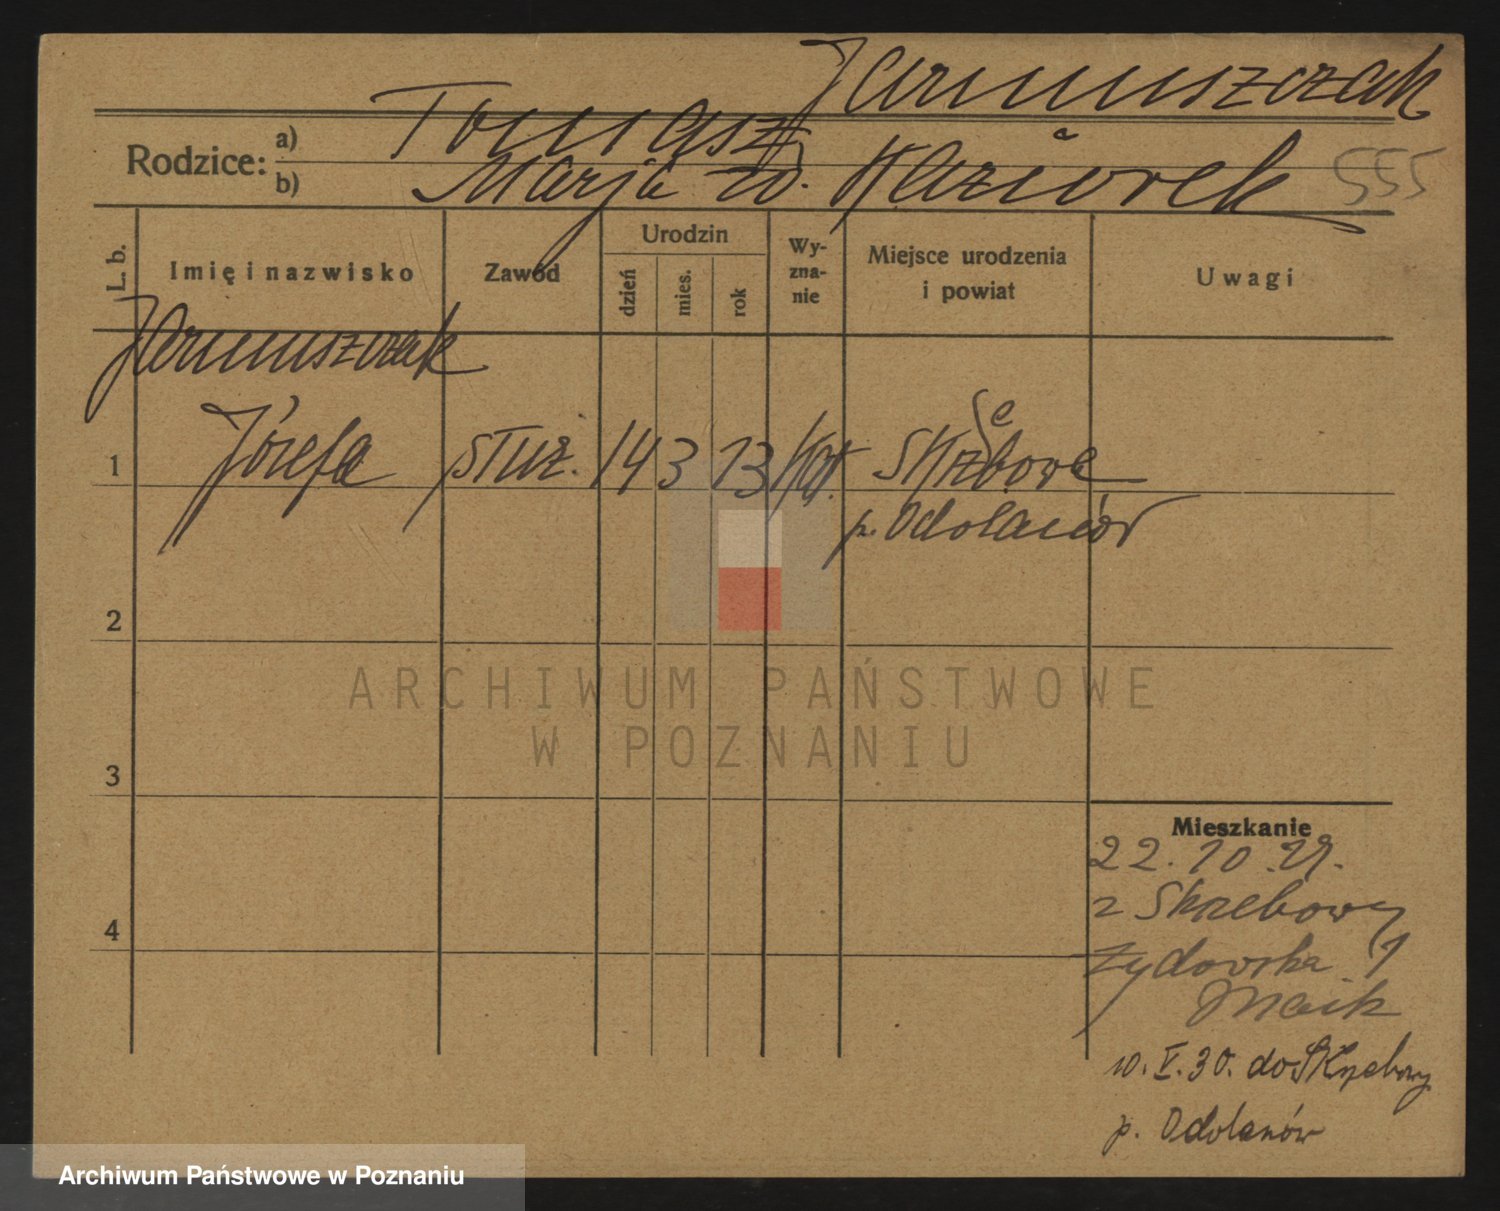 Januszczak
Rodzice: a) Tomasz
b) Marja z d. Kaziorek 555
L. b. Imię i nazwisko Zawód Urodzin dzień mies. rok Wy-zna-nie Miejsce urodzenia i powiat Uwagi
Januszczak
1 Józefa służ. 14 3 13 kat. Skrzebowa
p. Odolanów
2
ARCHIWUM PAŃSTWOWE
W POZNANIU
3
Mieszkanie
22.10.29.
z Skrzebowy
4
Żydowska 1
10.V.30. do Skrzebowy
p. Odolanów
Archiwum Państwowe w Poznaniu